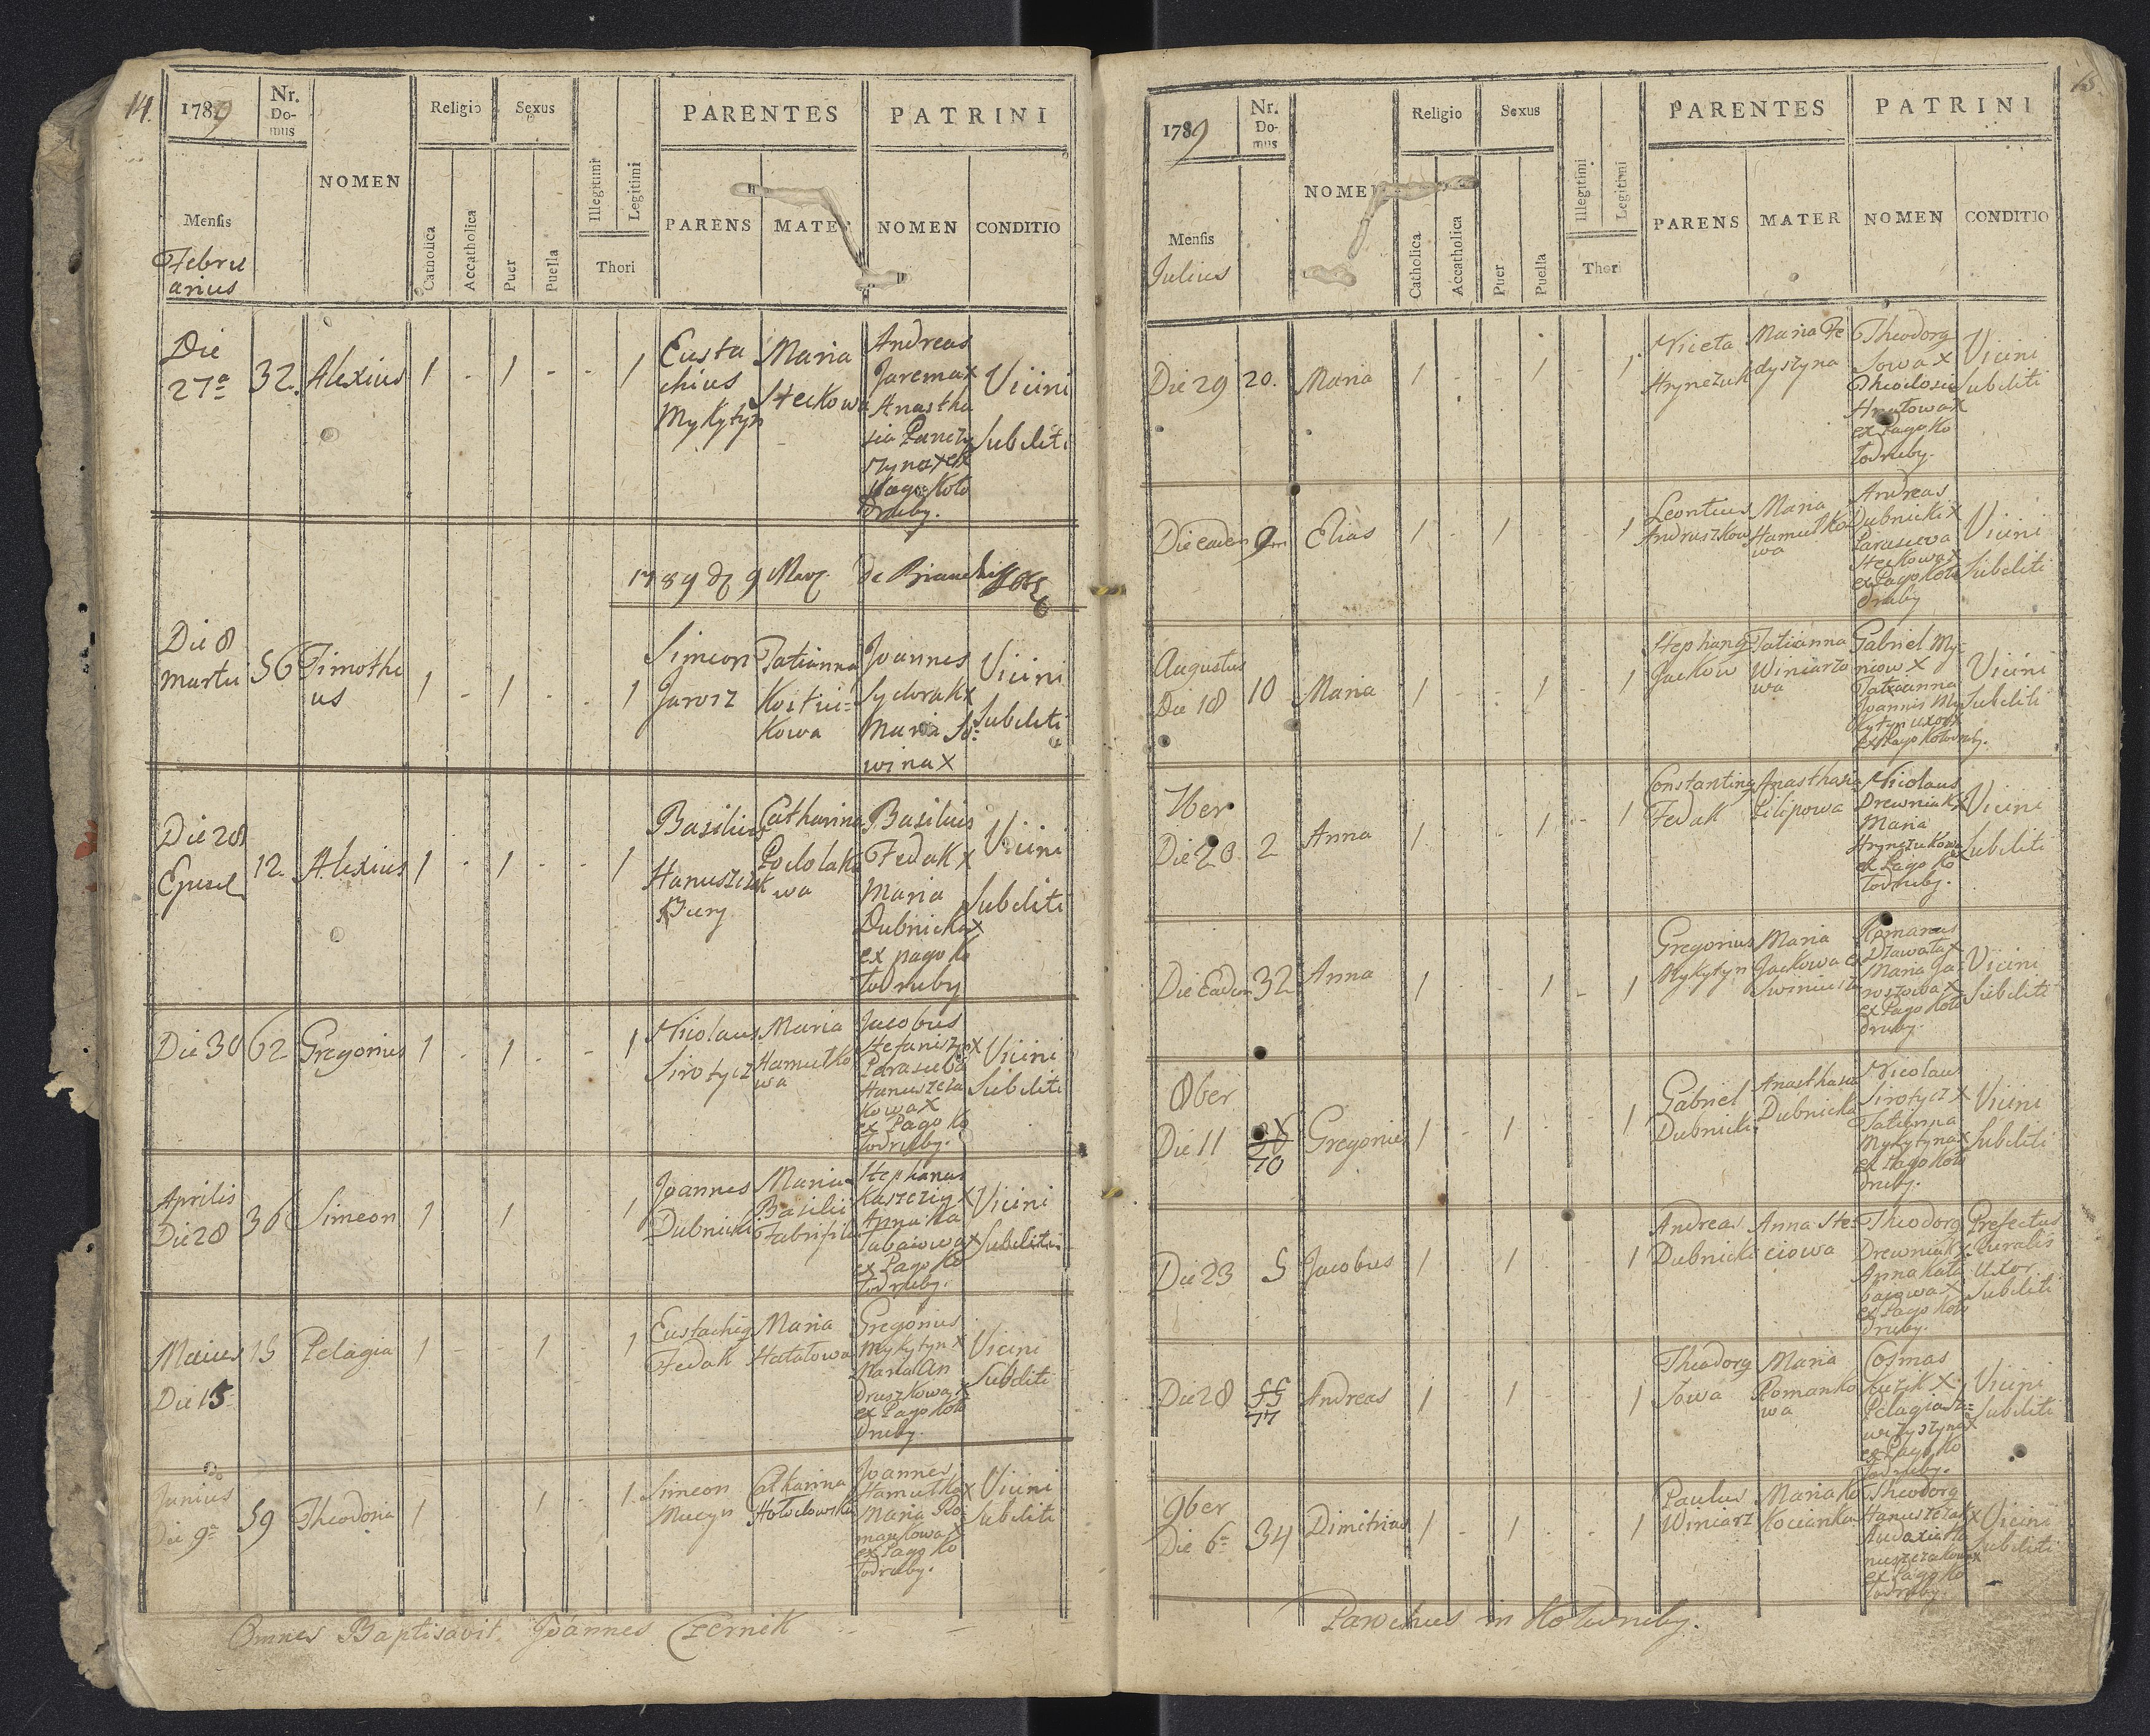 14.
1789
Nr. Do-mus
NOMEN
Religio
Sexus
PARENTES
PATRINI
Mensis
Catholica
Accatholica
Puer
Puella
Illegitimi
Legitimi
Thori
PARENS
MATER
NOMEN
CONDITIO
Febru
arius
Die
27a
32.
Alexius
1 - 1 - - 1
Eusta
chius
Mykytyn
Maria
Steckowa
Andreas
Jaremax
Anastha
sia
ex
Pago Koło
druby.
Vicini
Subditi
1789 9
Die 8
Martii
56
Timothe
us
1 - 1 - 1
Simeon
Jarosz
Tatianna
Kostiu=
kowa
Joannes
Sydorak x
Maria So:
wina x
Vicini
Subditi
Die 28
12
Alexius
1 - 1 - - 1
Basilius
Hanuszczak
Catharina
Podolako
wa
Basilius
Fedak x
Maria
Dubnicka x
ex pago Ko
łodruby
Vicini
Subditi
Die 30
62
Gregorius
1 - 1 - - 1
Nicolaus
Sirotycz
Maria
Hamułko
wa
Jacobus
Stefaniszyn x
Parasceva
Hanuszcza
kowa x
ex Pago Ko
łodruby.
Vicini
Subditi
Aprilis
Die 28
36
Simeon
1 1 1
Joannes
Dubnicki
Maria
Basilii
Fabri filia
Stephanus
Kaszczig x
Anna Ka
łabaiowa x
ex Pago Ko
łodruby.
Vicini
Subditi
Maius
Die 15
15
Pelagia
1 - - 1 - 1
Eustachig
Fedak
Maria
Hatałowa
Gregorius
Mykytyn x
Maria An
druszkowa x
ex Pago Koło
druby.
Vicini
Subditi
Junius
Die 9a
59
Theodoria
1 - - 1 - 1
Simeon
Mucyn
Catharina
Hołodowska
Joannes
Hamułka x
Maria Ro
mankowa x
ex Pago Ko
łodruby.
Vicini
Subditi
Omnes Baptisavit Joannes Czernik
15.
1789
Nr. Do-mus
NOMEN
Religio
Sexus
PARENTES
PATRINI
Mensis
Catholica
Accatholica
Puer
Puella
Illegitimi
Legitimi
Thori
PARENS
MATER
NOMEN
CONDITIO
Julius
Die 29
20.
Maria
1 - - 1 - 1
Niceta
Hrynczuk
Maria Fe
dyszyna
Theodorg
Sowa x
Theodosia
Hnatowa x
ex Pago Ko
łodruby.
Vicini
Subditi
Die eadem
9
Elias
1 - 1 - - 1
Leontius
Andruszkow
Maria
Hamułko
wa
Andreas
Dubnicki x
Parasceva
Steckowa x
ex Pago Koło
druby
Vicini
Subditi
Augustus
Die 18
10
Maria
1 - - 1 - 1
Stephang
Jackow
Tatianna
Winiarzo
wa
Gabriel My
niow x
Tatianna
Joannis My
kytyn uxor x
ex Pago Kołodruby.
Vicini
Subditi
7ber
Die 20
2
Anna
1 - - 1 - 1
Constanting
Fedak
Anasthasia
Filipowa
Nicolaus
Drewniak x
Maria
Hrynczukowa
ex Pago Ko
łodruby.
Vicini
Subditi
Die Eadem
32
Anna
1 - - 1 - 1
Gregorius
Mykytyn
Maria
Jackowa
Romanus
Dzawała x
Maria Ja
roszowa x
ex Pago Koło
druby.
Vicini
Subditi
8ber
Die 11
70
Gregorius
1 - 1 - - 1
Gabriel
Dubnicki
Anasthasia
Dubnicka
Nicolaus
Sirotycz x
Tatianna
Mykytyna x
ex Pago Koło
druby.
Vicini
Subditi
Die 23
5
Jacobus
1 - 1 - - 1
Andreas
Dubnicki
Anna Ste
ciowa
Theodorg
Drewniak x
Anna Kała
baiowa x
ex Pago Koło
druby.
Prefectus
Ruralis
Uxor
Subditi
Die 28
55
77
Andreas
1 - 1 - - 1
Theodorg
Sowa
Maria
Romanko
wa
Cosmas
Kuzik x
Pelagia
ex Pago Ko
łodruby.
Vicini
Subditi
9ber
Die 6
34
Dimitrius
1 - 1 - - 1
Paulus
Winiarz
Maria Ko
Kocianka
Theodorg
Hanuszczak x
Eudoxia Ha
nuszczakowa x
ex Pago Ko
łodruby.
Vicini
Subditi
Parochus in Kołodruby.